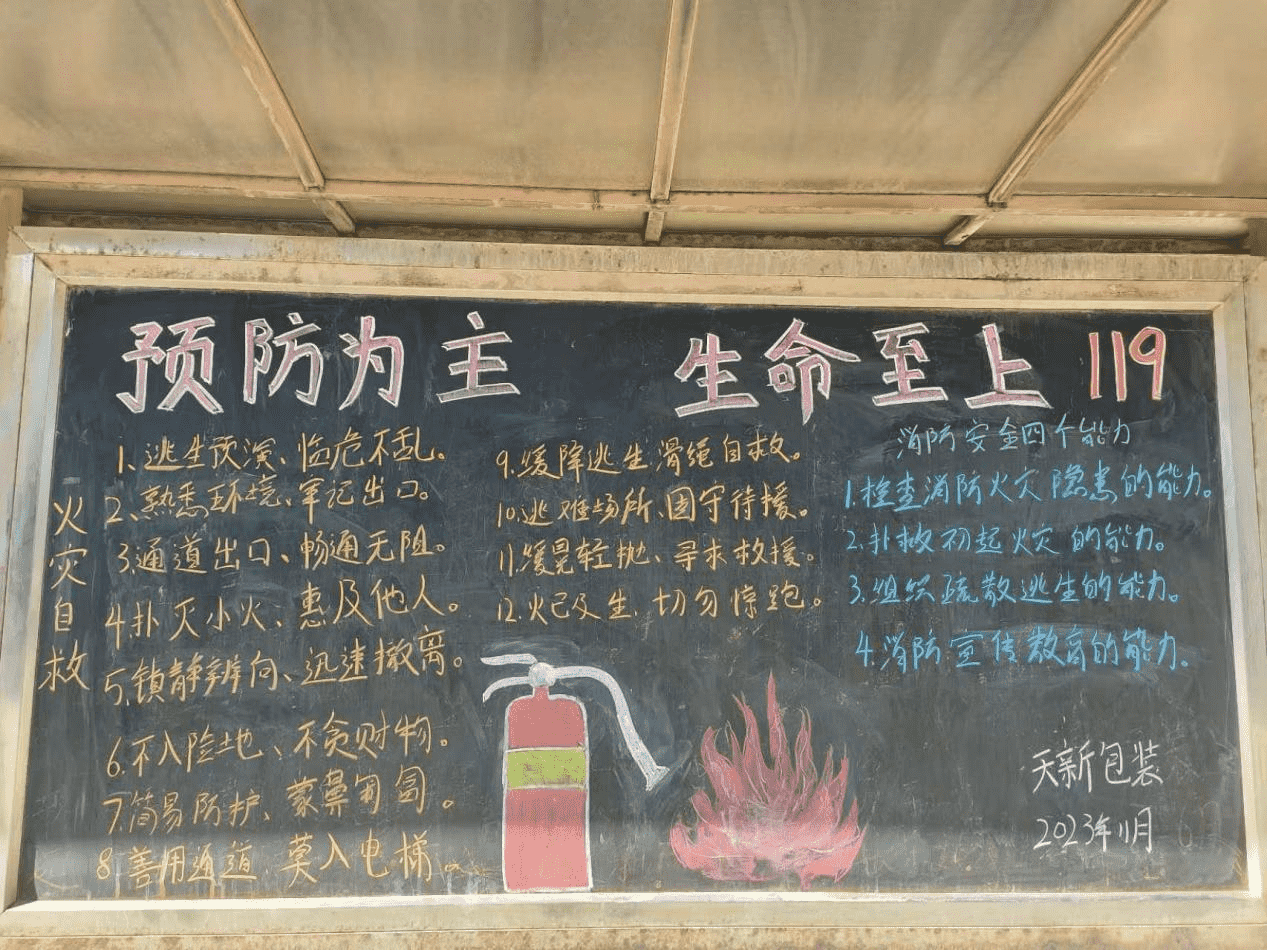 预防为主 生命至上 119
火灾自救
1、逃生预演、临危不乱。
2、熟悉环境、牢记出口。
3、通道出口、畅通无阻。
4、扑灭小火、惠及他人。
5、镇静辨向、迅速撤离。
6、不入险地、不贪财物。
7、简易防护、蒙鼻匍匐。
8、善用通道、莫入电梯。
9、缓降逃生、滑绳自救。
10、逃难场所、固守待援。
11、缓晃轻抛、寻求救援。
12、火已及生、切勿惊跑。
消防安全四个能力
1、检查消防火灾隐患的能力。
2、扑救初起火灾的能力。
3、组织疏散逃生的能力。
4、消防宣传教育的能力。
天新包装
2023年11月